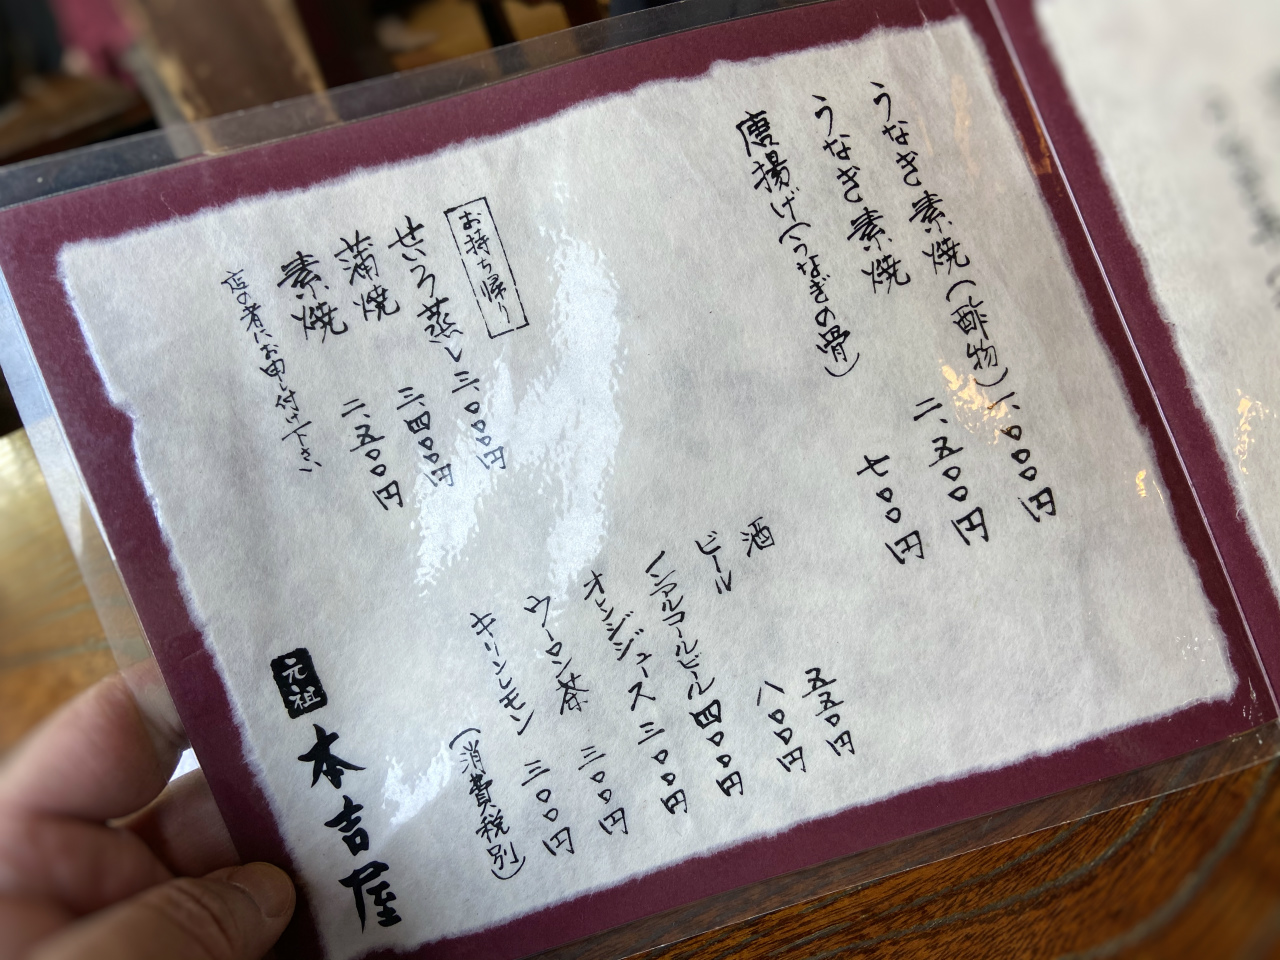 うなぎ素焼(酢物) 一、〇〇〇円
うなぎ素焼 二、五〇〇円
唐揚げ(うなぎの骨) 七〇〇円
酒 五五〇円
ビール 八〇〇円
ノンアルコールビール 四〇〇円
オレンジジュース 三〇〇円
ウーロン茶 三〇〇円
キリンレモン 三〇〇円
(消費税別)
お持ち帰り
せいろ蒸し 三、〇〇〇円
蒲焼 三、四〇〇円
素焼 二、五〇〇円
店の者にお申し付け下さい
元祖
本吉屋